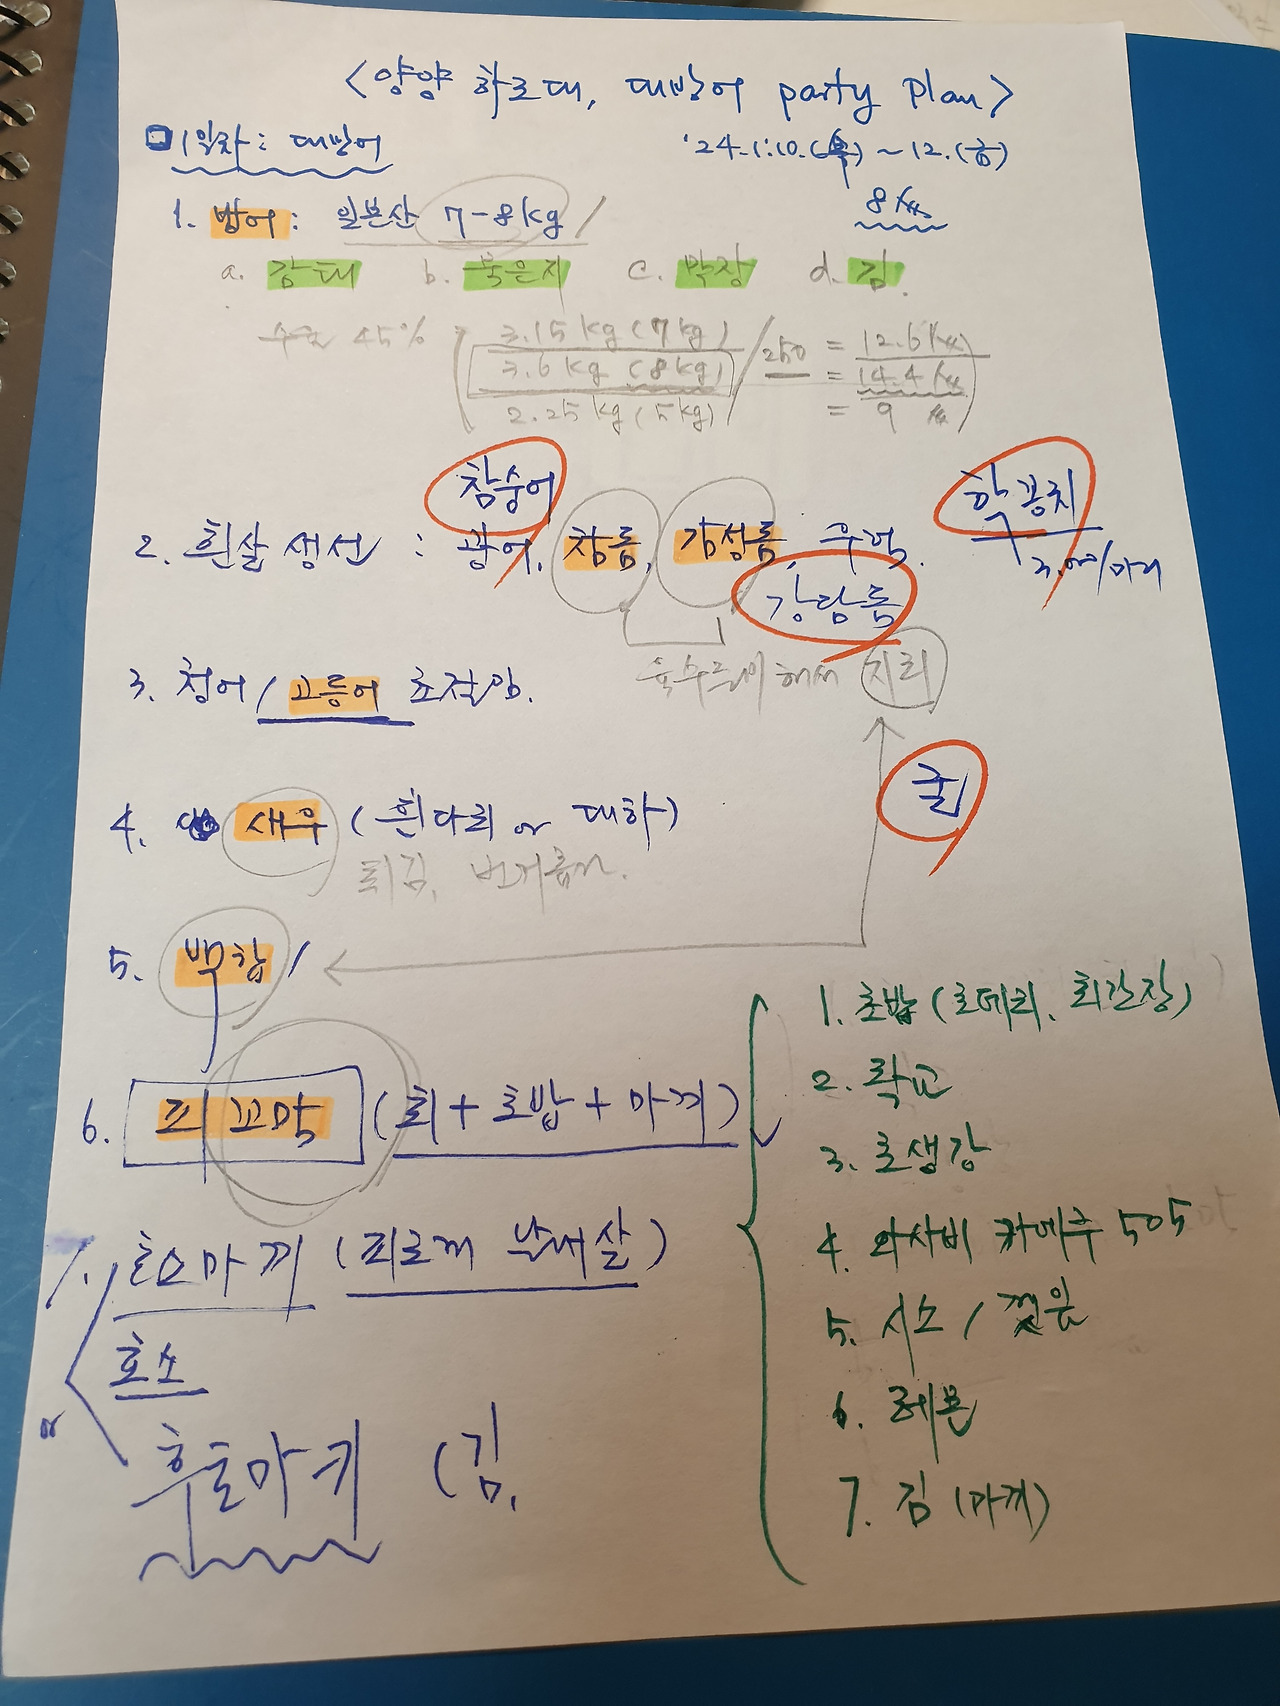 <양양 하조대, 대방어 party Plan>
1일차: 대방어
'24.1.10.(목) ~ 12.(금)
8人
1. 방어: 일본산 7-8kg /
a. 감태 b. 묵은지 c. 막장 d. 김.
수율 45% 3.15 kg (7kg) / 250 = 12.6人
3.6 kg (8kg) = 14.4人
2.25 kg (5kg) = 9 人
참숭어 학꽁치
2. 흰살 생선 : 광어, 참돔, 감성돔, 우럭.
/마리
강담돔
해서 지리
3. 청어 / 고등어 초절임.
굴
4. 새우 (흰다리 or 대하)
튀김, 번거롭다.
5. 백합 /
6. 피꼬막 (회 + 초밥 + 마끼)
7. 호소마끼 (피로끼 날개살)
호소
or
후토마키 (김,
1. 초밥 (초데리, 회간장)
2. 락교
3. 초생강
4. 와사비 카메루 505
5. 시소 / 깻잎
6. 레몬
7. 김 (마끼)